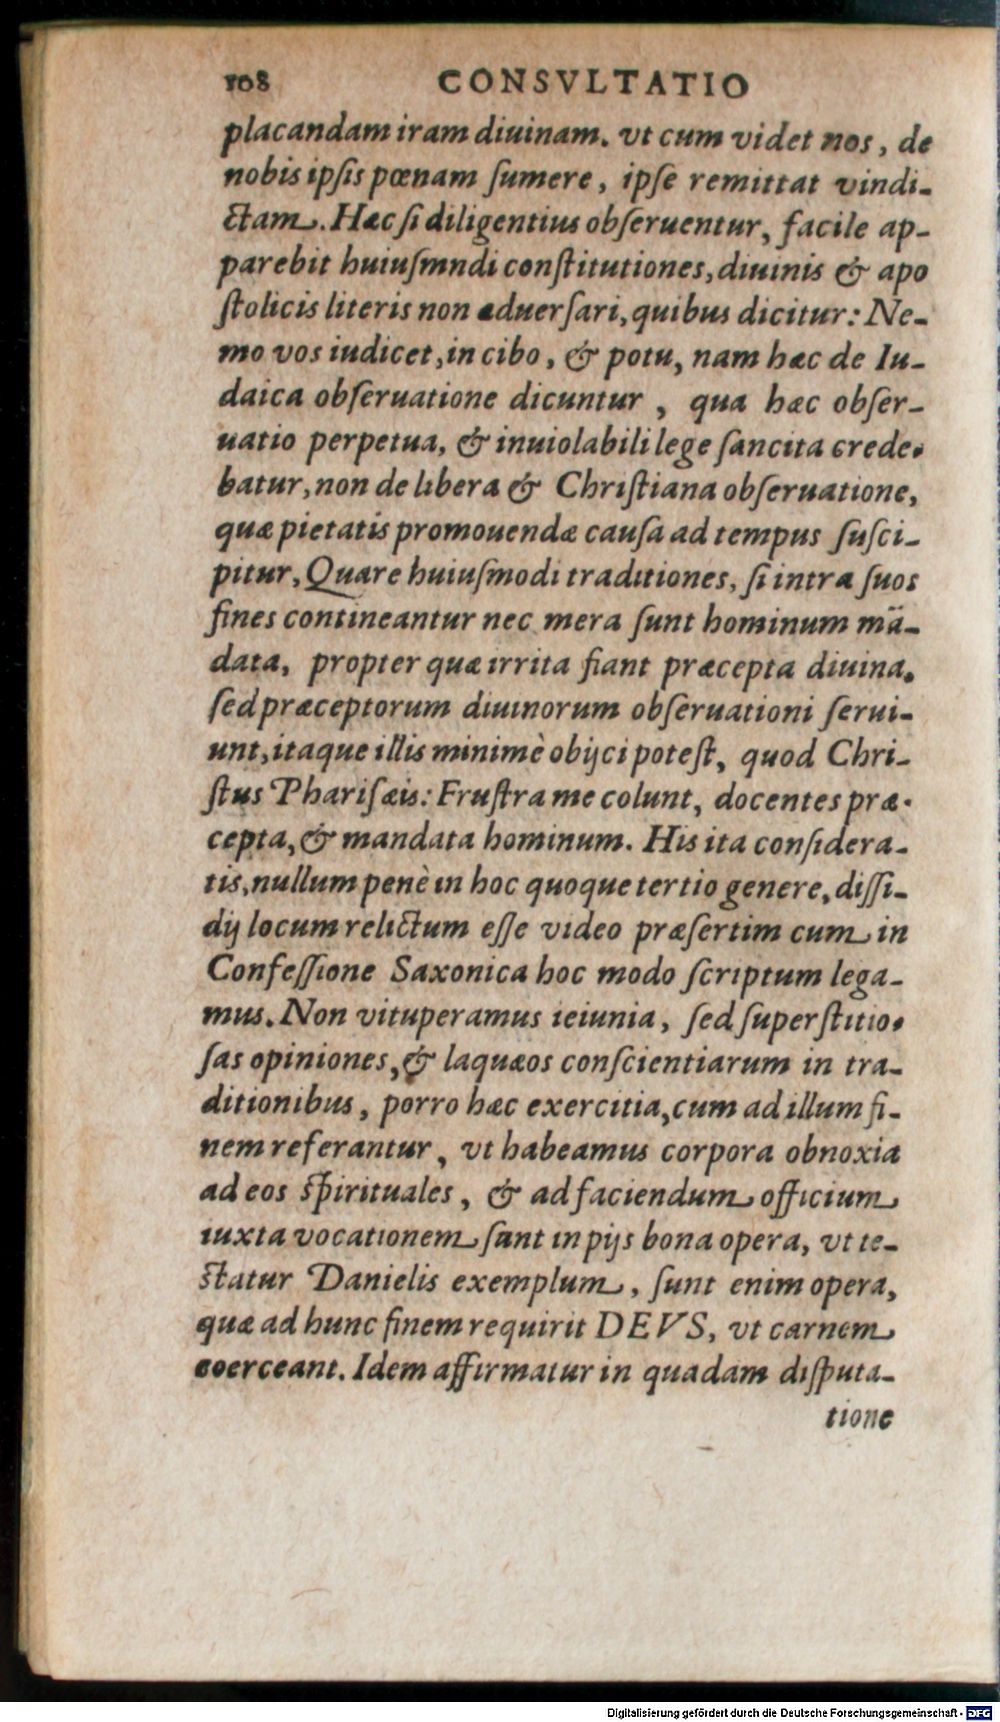 108 CONSVLTATIO
placandam iram diuinam. vt cum videt nos, de
nobis ipſis pœnam ſumere, ipſe remittat vindi-
ctam. Hæc ſi diligentius obſeruentur, facile ap-
parebit huiuſmndi conſtitutiones, diuinis & apo
ſtolicis literis non aduerſari, quibus dicitur: Ne-
mo vos iudicet, in cibo, & potu, nam hæc de Iu-
daica obſeruatione dicuntur, qua hæc obſer-
uatio perpetua, & inuiolabili lege ſancita crede-
batur, non de libera & Chriſtiana obſeruatione,
quæ pietatis promouendæ cauſa ad tempus ſuſci-
pitur, Quare huiuſmodi traditiones, ſi intra ſuos
fines contineantur nec mera ſunt hominum mā-
data, propter quæ irrita fiant præcepta diuina.
ſed præceptorum diuinorum obſeruationi ſerui-
unt, itaque illis minimè obijci poteſt, quod Chri-
ſtus Phariſæis: Fruſtra me colunt, docentes præ-
cepta, & mandata hominum. His ita conſidera-
tis, nullum penè in hoc quoque tertio genere, diſſi-
dij locum relictum eſſe video præſertim cum in
Confeſſione Saxonica hoc modo ſcriptum lega-
mus. Non vituperamus ieiunia, ſed ſuperſtitio-
ſas opiniones, & laquæos conſcientiarum in tra-
ditionibus, porro hæc exercitia, cum ad illum fi-
nem referantur, vt habeamus corpora obnoxia
ad eos ſpirituales, & ad faciendum officium
iuxta vocationem ſunt in pijs bona opera, vt te-
ſtatur Danielis exemplum, ſunt enim opera,
quæ ad hunc finem requirit DEVS, vt carnem
coerceant. Idem affirmatur in quadam diſputa-
tione
Digitalisierung gefördert durch die Deutsche Forschungsgemeinschaft - DFG